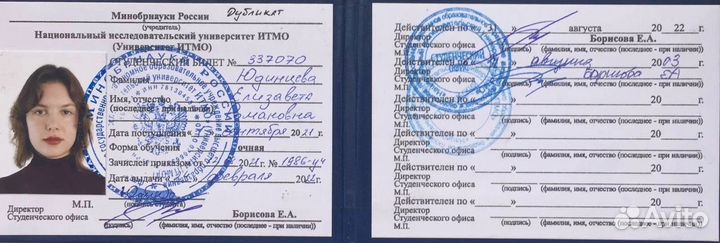 Минобрнауки России Дубликат
(учредитель)
Национальный исследовательский университет ИТМО
(Университет ИТМО)
СТУДЕНЧЕСКИЙ БИЛЕТ № 337070
Фамилия
Имя, отчество Елизавета
(последнее - при наличии)
Дата поступления сентября 2021 г.
Форма обучения очная
Зачислен приказом от № 1986-уч
Дата выдачи февраля
(подпись студента)
Директор М.П.
Студенческого офиса Борисова Е.А.
(подпись) (фамилия, имя, отчество (последнее - при наличии))
Действителен по « 31 » августа 20 22 г.
Директор Борисова Е.А.
Студенческого офиса
М.П. (подпись) (фамилия, имя, отчество (последнее - при наличии))
Действителен по « » августа 20 03
Директор Борисова ЕА
Студенческого офиса
М.П. (подпись) (фамилия, имя, отчество (последнее - при наличии))
Действителен по « » 20
Директор
Студенческого офиса
М.П. (подпись) (фамилия, имя, отчество (последнее - при наличии))
Действителен по « » 20
Директор
Студенческого офиса
М.П. (подпись) (фамилия, имя, отчество (последнее - при наличии))
Действителен по « » 20
Директор
Студенческого офиса
М.П. (подпись) (фамилия, имя, отчество (последнее - при наличии))
Действителен по « » 20
Директор
Студенческого офиса
М.П. (подпись) (фамилия, имя, отчество (последнее - при наличии))
Avito